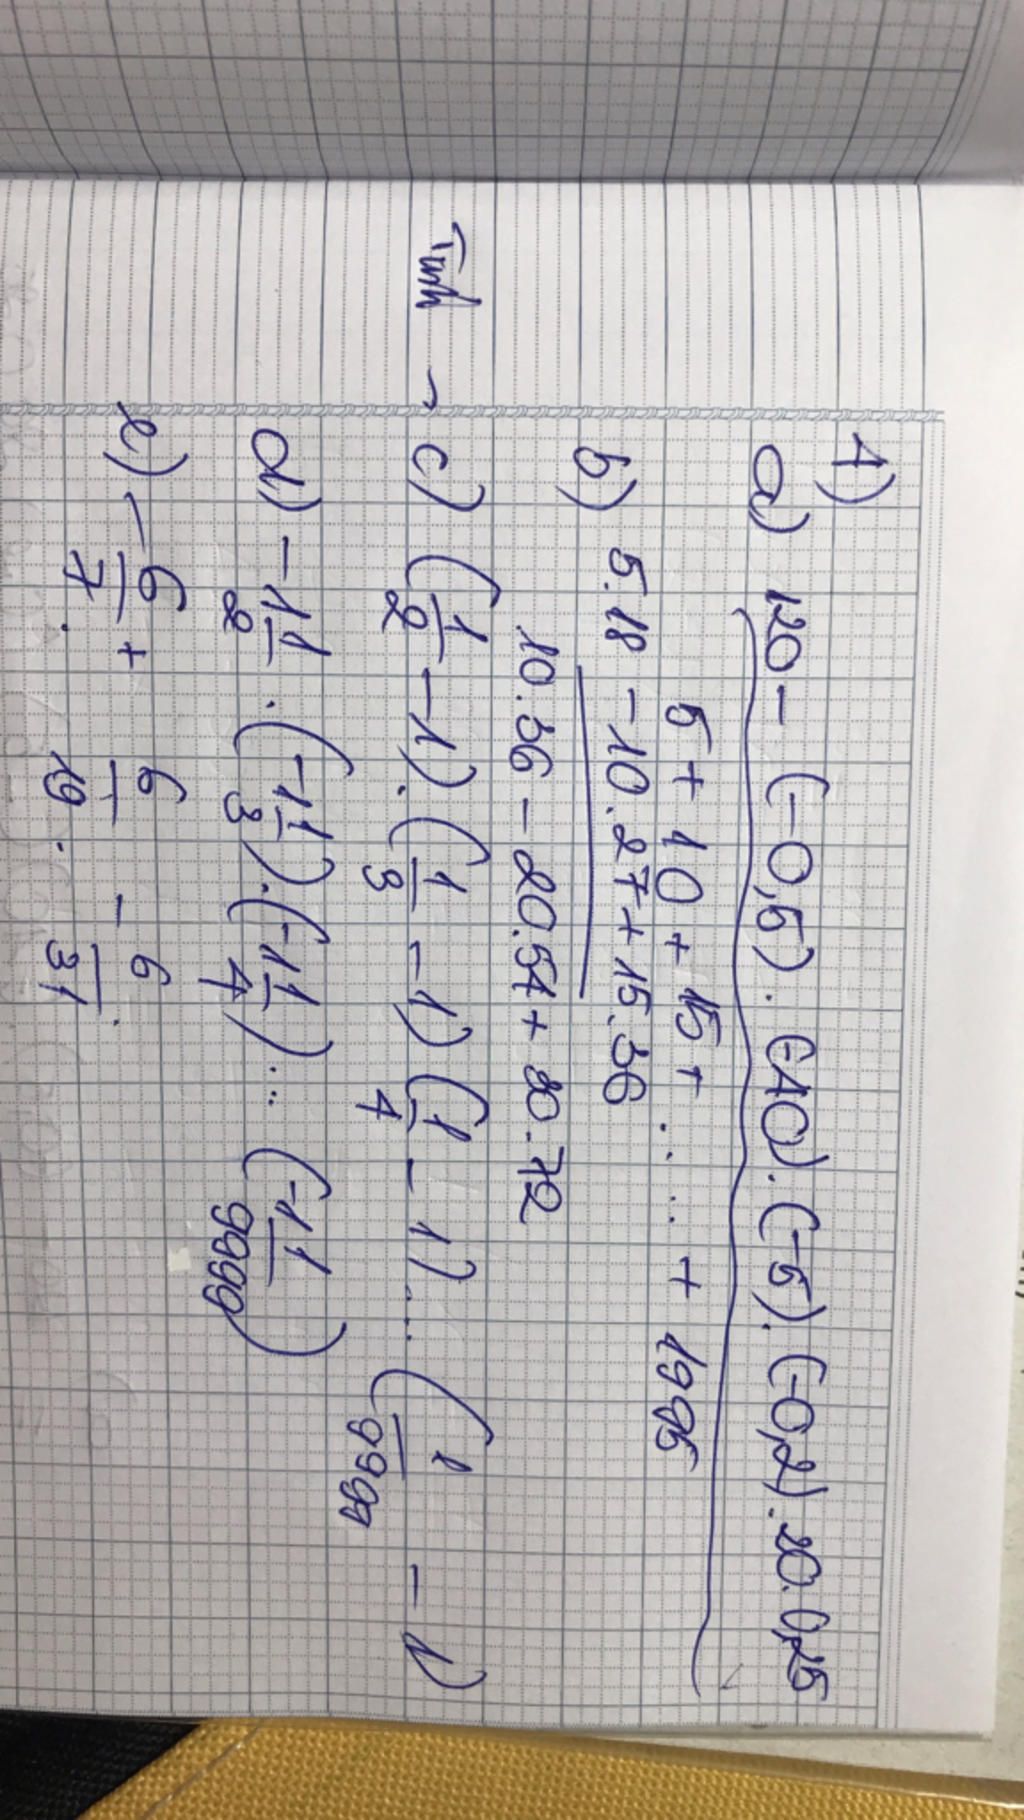 1)
a) 120 - (-0,5). (-40). (-5). (-0,2). 20. 0,25
5 + 10 + 15 + ..... + 1995
b) 5.18 - 10.27 + 15.36
10.36 - 20.54 + 30.72
Tính c) (1/2 - 1). (1/3 - 1) (1/4 - 1) .... (1/9999 - 1)
d) -1 1/2 . (-1 1/3). (-1 1/4) ... (-1 1/9999)
e) - 6/7 + 6/19 - 6/31